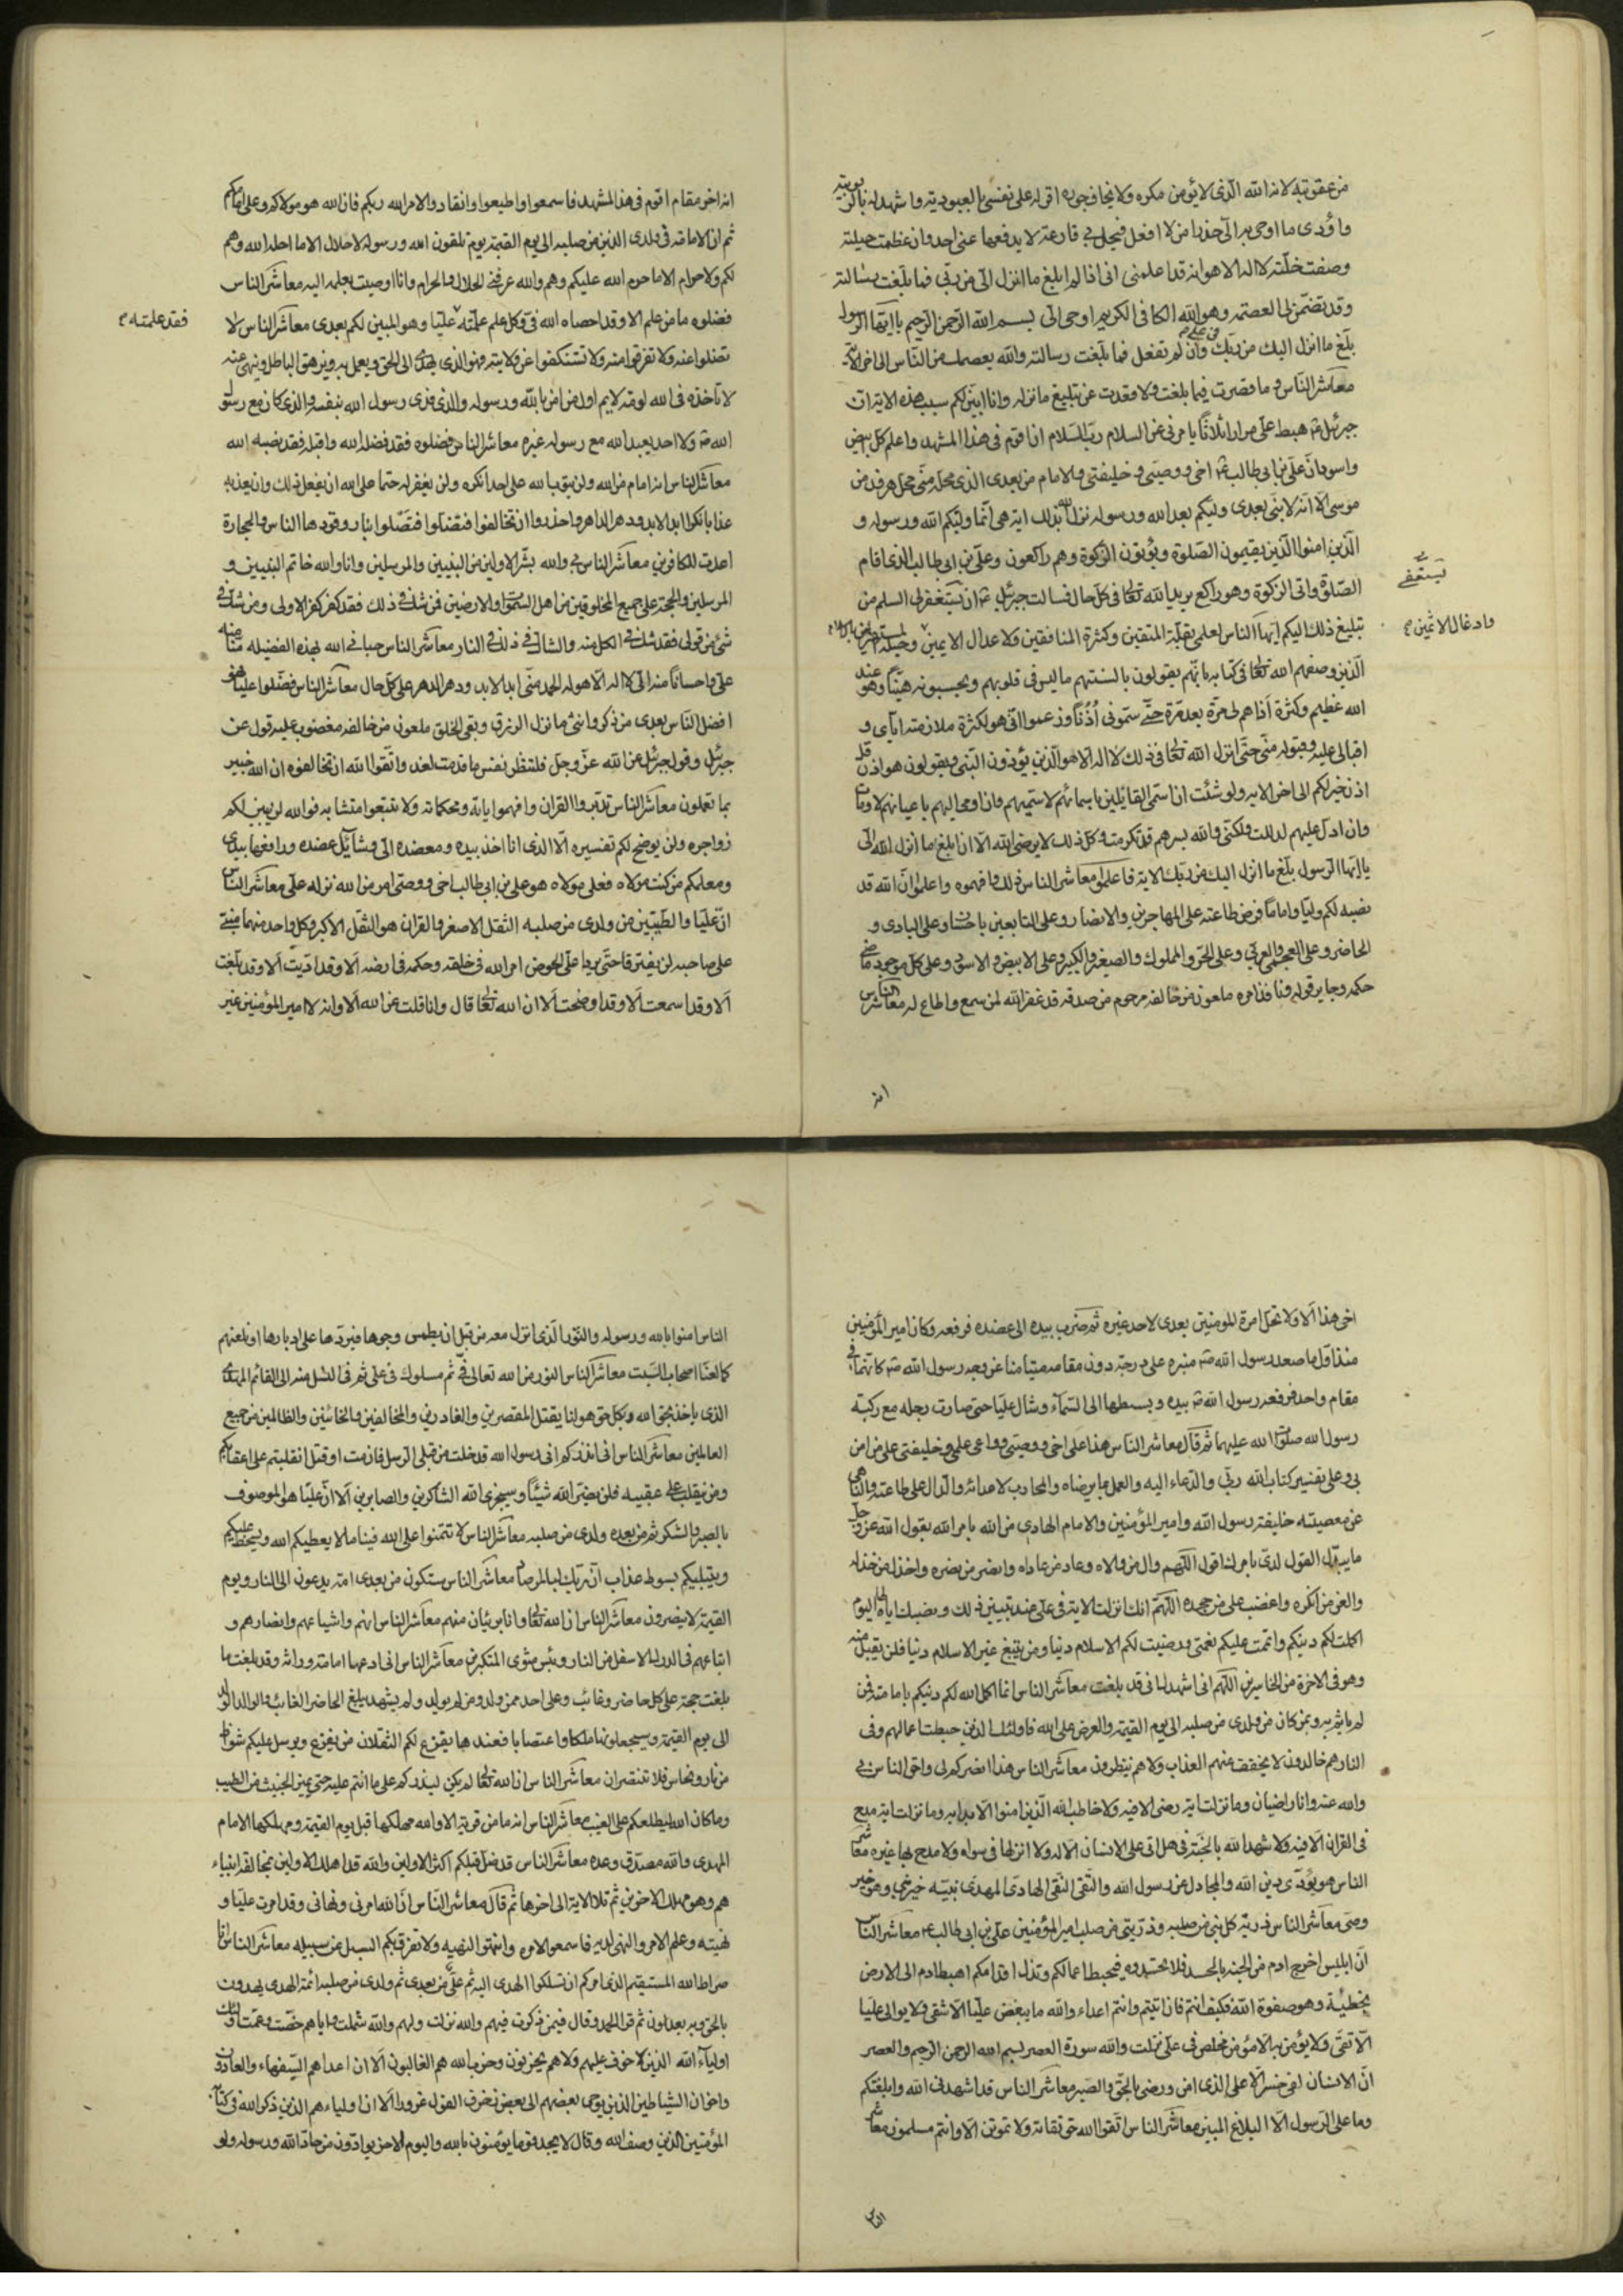 من عقوبته لانه الله الذی لا یؤمن مکره ولا یخاف جوره اقر له علی نفسی بالعبودیة واشهد له بالربوبیة
واؤدی ما اوحی به الیّ حذرا من لا افعل فیحل بی قارعة لا یدفعها عنی احد وان عظمت حیلته
وصفت خلته لا اله الا هو انه قد اعلمنی انی اذا لم ابلغ ما انزل الیّ من ربی فما بلغت رسالته
وقد تضمن لی العصمة وهو الله الکافی الکریم اوحی الی بسم الله الرحمن الرحیم یا ایها الرسول
بلغ ما انزل الیک من ربک فی علی وان لم تفعل فما بلغت رسالته والله یعصمک من الناس الی اخر الایة
معاشر الناس وما قصرت فیما بلغت ولا قعدت عن تبلیغ ما نزله وانا ابین لکم سبب هذه الایة ان
جبرئیل هبط علیّ مرارا ثلاثا یامرنی عن السلام رب السلام ان اقوم فی هذا المشهد واعلم کل ابیض
واسود ان علی بن ابی طالب اخی ووصیی وخلیفتی والامام من بعدی الذی محله منی محل هرون من
موسی الا انه لا نبی بعدی ولیکم بعد الله ورسوله نزل الله بذلک ایة هی انما ولیکم الله ورسوله و
الذین امنوا الذین یقیمون الصلوة ویؤتون الزکوة وهم راکعون وعلی بن ابی طالب الذی اقام
الصلوة واتی الزکوة وهو راکع یرید الله تعالی فی کل حال فسالت جبرئیل ان یستغفر لی السلم من
یستعفی
تبلیغ ذلک الیکم ایها الناس لعلمی بقلة المتقین وکثرة المنافقین ولا عدال الایمین وحیلة المستهزئین بالاسلام
وادغال الاثمین
الذین وصفهم الله تعالی فی کتابه بانهم یقولون بالسنتهم ما لیس فی قلوبهم ویحسبونه هینا وهو عند
الله عظیم وکثرة اذاهم لی مرة بعد مرة حتی سمونی اذنا وزعموا انی هو لکثرة ملازمته ایای و
اقبالی علیه وقبوله منی حتی انزل الله تعالی فی ذلک لا اله الا هو الذین یؤذون النبی ویقولون هو اذن قل
اذن خیر لکم الی اخر الایه ولو شئت ان اسمی القائلین باسمائهم لاسمیهم وان اومی الیهم باعیانهم لاومات
وان ادل علیهم لدللت ولکنی والله بسرهم قد تکرمت وکل ذلک لا یرضی الله الا ان ابلغ ما انزل الله الی
یا ایها الرسول بلغ ما انزل الیک من ربک الایة فاعلموا معاشر الناس ذلک وافهموه واعلموا ان الله قد
نصبه لکم ولیا واماما فرض طاعته علی المهاجرین والانصار وعلی التابعین باحسان وعلی البادی و
الحاضر وعلی العجمی والعربی وعلی الحر والمملوک والصغیر والکبیر وعلی الابیض والاسود وعلی کل موجود ماض
حکمه وجایز قوله ونافذ امره ملعون من خالفه مرحوم من صدقه قد غفر الله لمن سمع واطاع له معاشر الناس
انه
انه اخر مقام اقوم فی هذا المشهد فاسمعوا واطیعوا وانقادوا لامر الله ربکم فان الله هو مولاکم وعلی امامکم
ثم ان الامامة فی ولدی الذین من صلبه الی یوم القیمة یوم تلقون الله ورسوله لا حلال الا ما احله الله وهم
لکم ولا حرام الا ما حرم الله علیکم وهم والله عرفنی الحلال والحرام وانا اوصیت بعلمه الیه معاشر الناس
فضلوه ما من علم الا وقد احصاه الله فیّ وکل علم علمته علیا وهو المبین لکم بعدی معاشر الناس لا
فقد علمته
تضلوا عنه ولا تفرقوا منه ولا تستنکفوا عن ولایته فهو الذی یهدی الی الحق ویعمل به ویزهق الباطل وینهی عنه
لا تاخذه فی الله لومة لایم اول من امن بالله ورسوله والذی فدی رسول الله بنفسه والذی کان مع رسول
الله ولا احد یعبد الله مع رسوله غیره معاشر الناس فضلوه فقد فضله الله واقبلوه فقد نصبه الله
معاشر الناس انه امام من الله ولن یتوب الله علی احد انکره ولن یغفر له حتما علی الله ان یفعل ذلک وان یعذبه
عذابا نکرا ابد الابد ودهر الداهر واحذروا ان تخالفوا فتضلوا فتصلوا بنار وقودها الناس والحجارة
اعدت للکافرین معاشر الناس بی والله بشر الاولین من النبیین والمرسلین وانا والله خاتم النبیین و
المرسلین والحجة علی جمیع المخلوقین من اهل السموات والارضین فمن شک فی ذلک فقد کفر کفر الاولی ومن شک فی
شئ من قولی فقد شک فی الکل منه والشاک فی ذلک فی النار معاشر الناس حبانی الله بهذه الفضیله منا منه
علی واحسانا منه الی لا اله الا هو له الحمد منی ابد الابد ودهر الدهر علی کل حال معاشر الناس فضلوا علیا فهو
افضل الناس بعدی من ذکر وانثی ما نزل الرزق وبقی الخلق ملعون من خالفه مغضوب علیه قول عن
جبرئیل وقول جبرئیل عن الله عز وجل فلتنظر نفس ما قدمت لغد واتقوا الله ان تخالفوه ان الله خبیر
بما تعملون معاشر الناس تدبروا القران وافهموا ایاته ومحکماته ولا تتبعوا متشابه فوالله لن یبین لکم
زواجره ولن یوضح لکم تفسیره الا الذی انا اخذ بیده ومصعده الی وشائل عضده ورافعها بیدی
ومعلمکم من کنت مولاه فعلی مولاه هو علی بن ابی طالب اخی ووصیی امر من الله نزله علی معاشر الناس
ان علیا والطیبین من ولدی من صلبه الثقل الاصغر والقران هو الثقل الاکبر وکل واحد منهما مبنی
علی صاحبه لن یفترقا حتی یردا علی الحوض امر الله فی خلقه وحکمه فی ارضه الا وقد ادیت الا وقد بلغت
الا وقد اسمعت الا وقد اوضحت الا ان الله تعالی قال وانا قلت عن الله الا وانه لا امیر المؤمنین غیر
اخی هذا الا ولا تحل امرة المومنین بعدی لاحد غیره ثم ضرب بیده الی عضده فرفعه وکان امیر المؤمنین
منذ اول ما صعد رسول الله منبره علی درجة دون مقامه متیامنا عن وجه رسول الله کانهما فی
مقام واحد فرفعه رسول الله بیده وبسطها الی السماء وشال علیا حتی صارت رجله مع رکبة
رسول الله صلوات الله علیهما ثم قال معاشر الناس هذا علی اخی ووصیی وواعی علمی وخلیفتی علی من امن
بی وعلی تفسیر کتاب الله ربی والدعاء الیه والعمل بما یرضاه والمحارب لاعدائه والدال علی طاعته والناهی
عن معصیته خلیفة رسول الله وامیر المؤمنین والامام الهادی من الله بامر الله یقول الله عز وجل
ما یبدل القول لدی بامرک اقول اللهم وال من والاه وعاد من عاداه وانصر من نصره واخذل من خذله
والعن من انکره واغضب علی من جحده اللهم انک انزلت الایة فی علی عند تبیین ذلک ونصبک ایاه لها الیوم
اکملت لکم دینکم واتممت علیکم نعمتی ورضیت لکم الاسلام دینا ومن یبتغ غیر الاسلام دینا فلن یقبل منه
وهو فی الاخرة من الخاسرین اللهم انی اشهدک انی قد بلغت معاشر الناس انما اکمل الله لکم دینکم بامامته فمن
لم یاتم به وبمن کان من ولدی من صلبه الی یوم القیمة والعرض علی الله فاولئک الذین حبطت اعمالهم وفی
النار هم خالدون لا یخفف عنهم العذاب ولا هم ینظرون معاشر الناس هذا انصرکم لی واحق الناس بی
والله عنه وانا راضیان وما نزلت ایة رضی الا فیه ولا خاطب الله الذین امنوا الا بدا به وما نزلت ایة مدح
فی القران الا فیه ولا شهد الله بالجنة فی هل اتی علی الانسان الا له ولا انزلها فی سواه ولا مدح بها غیره معاشر
الناس هو یؤدی دین الله والمجادل عن رسول الله والتقی النقی الهادی المهدی نبیه خیر نبی وهو خیر
وصی معاشر الناس ذریة کل نبی من صلبه وذریتی من صلب امیر المؤمنین علی بن ابی طالب معاشر الناس
ان ابلیس اخرج ادم من الجنة بالحسد فلا تحسدوه فیحبط اعمالکم وتذل اقدامکم اهبط ادم الی الارض
بخطیئة وهو صفوة الله فکیف انتم فان ابیتم وانتم اعداء والله ما یبغض علیا الا شقی ولا یوالی علیا
الا تقی ولا یؤمن به الا مؤمن مخلص فی علی نزلت والله سورة العصر بسم الله الرحمن الرحیم والعصر
ان الانسان لفی خسر الا علی الذی امن ورضی بالحق والصبر معاشر الناس قد اشهد فی الله وابلغتکم
وما علی الرسول الا البلاغ المبین معاشر الناس اتقوا الله حق تقاته ولا تموتن الا وانتم مسلمون معاشر
الناس
الناس امنوا بالله ورسوله والنور الذی انزل معه من قبل ان یطمس وجوها فیردها علی ادبارها او نلعنهم
کما لعنا اصحاب السبت معاشر الناس النور من الله تعالی فیّ ثم مسلوک فی علی ثم فی النسل منه الی القائم المهدی
الذی یاخذ بحق الله وبکل حق هو لنا یقتل المقصرین والغادرین والمخالفین والخائنین والظالمین من جمیع
العالمین معاشر الناس انی انذرکم انی رسول الله قد خلت من قبلی الرسل فان مت او قتل انقلبتم علی اعقابکم
ومن ینقلب علی عقبیه فلن یضر الله شیئا وسیجزی الله الشاکرین والصابرین الا ان علیا هو الموصوف
بالصبر والشکر ثم من بعده ولدی من صلبه معاشر الناس لا تتمنوا علی الله فینا ما لا یعطیکم الله ویسخط علیکم
ویبتلیکم بسوط عذاب ان ربک لبالمرصاد معاشر الناس ستکون من بعدی ائمة یدعون الی النار ویوم
القیمة لا ینصرون معاشر الناس ان الله تعالی وانا بریئان منهم معاشر الناس انهم واشیاعهم وانصارهم و
اتباعهم فی الدرک الاسفل من النار وبئس مثوی المتکبرین معاشر الناس انی ادعها امامة وراثه وقد بلغت ما
بلغت حجة علی کل حاضر وغائب وعلی احد ممن ولد ومن لم یولد ولم یشهد یبلغ الحاضر الغائب والوالد الولد
الی یوم القیمة وسیجعلونها ملکا واغتصابا فعندها یفرغ لکم الثقلان من یفرغ ویرسل علیکم شواظ
من نار ونحاس فلا تنتصران معاشر الناس ان الله تعالی لم یکن لیذرکم علی ما انتم علیه حتی یمیز الخبیث من الطیب
وما کان الله لیطلعکم علی الغیب معاشر الناس انه ما من قریة الا والله مهلکها قبل یوم القیمة ومهلکها الامام
المهدی والله مصدق وعده معاشر الناس قد ضل قبلکم اکثر الاولین والله قد اهلک الاولین بمخالفة انبیاء
هم وهو مهلک الاخرین ثم تلا الایة الی اخرها ثم قال معاشر الناس ان الله امرنی ونهانی وقد امرت علیا و
نهیته وعلم الامر والنهی لدیه فاسمعوا لامره وانتهوا لنهیه ولا تفرق بکم السبل عن سبیله معاشر الناس انا
صراط الله المستقیم الذی امرکم ان تسلکوا الهدی الیه ثم علی من بعدی ثم ولدی من صلبه ائمة الهدی یهدون
بالحق وبه یعدلون ثم قرا الحمد وقال فیمن ذکرت فیهم والله نزلت ولهم والله شملت وایاهم خصت وعمت اولئک
اولیاء الله الذین لا خوف علیهم ولا هم یحزنون وحزب الله هم الغالبون الا ان اعداهم السفهاء والغاوون
واخوان الشیاطین الذین یوحی بعضهم الی بعض زخرف القول غرورا الا ان اولیاءهم الذین ذکر الله فی کتابه
المؤمنین الذین وصف الله وقال لا یجد قوما یؤمنون بالله والیوم الاخر یوادون من حاد الله ورسوله ولو